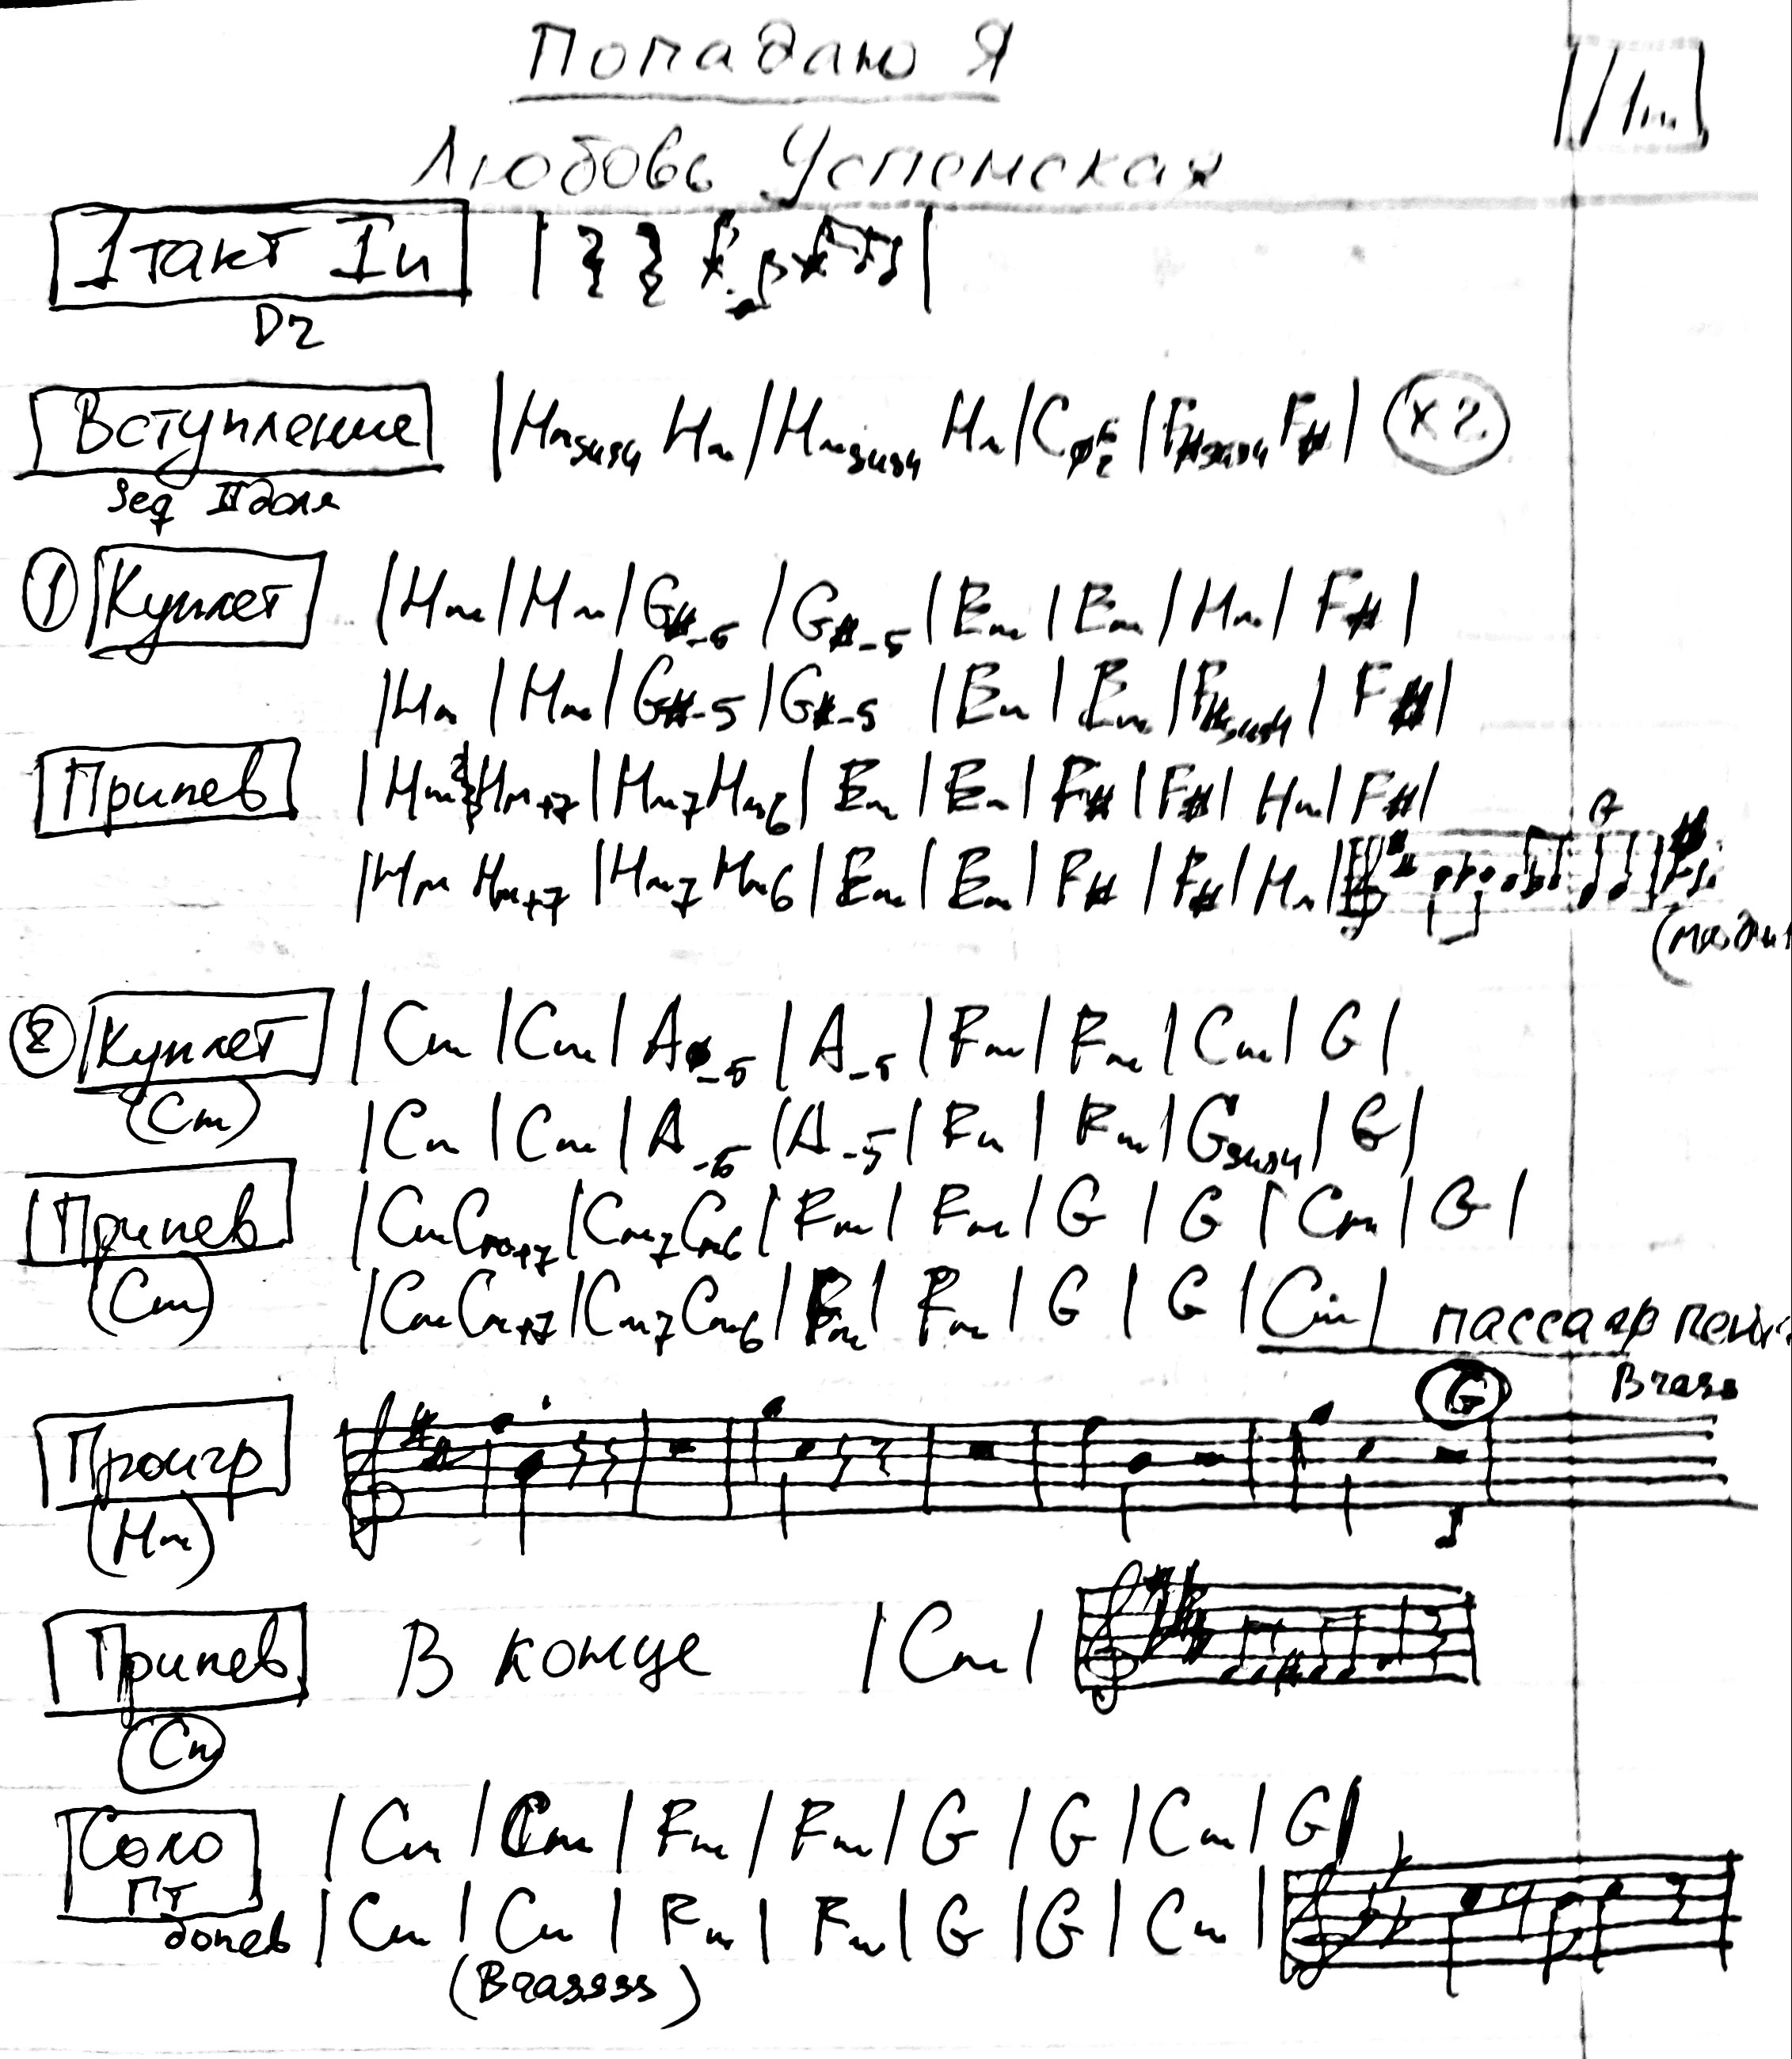 Попадаю Я
Любовь Успенская
1 такт In
Dr
Вступление |Hmsus4 Hm|Hmsus4 Hm|C|F#sus4 F#| x2
Seq II доля
1 Куплет |Hm|Hm|G#-5|G#-5|Em|Em|Hm|F#|
|Hm|Hm|G#-5|G#-5|Em|Em|F#sus4|F#|
Припев |Hm Hm+7|Hm7 Hm6|Em|Em|F#|F#|Hm|F#|
G
|Hm Hm+7|Hm7 Hm6|Em|Em|F#|F#|Hm|
2 Куплет |Cm|Cm|A-5|A-5|Fm|Fm|Cm|G|
(Cm) |Cm|Cm|A-5|A-5|Fm|Fm|Gsus4|G|
Припев |Cm Cm+7|Cm7 Cm6|Fm|Fm|G|G|Cm|G|
(Cm) |Cm Cm+7|Cm7 Cm6|Fm|Fm|G|G|Cm| пассаж
G Brass
Проигр
(Hm)
Припев В конце |Cm|
(Cm)
Соло |Cm|Cm|Fm|Fm|G|G|Cm|G|
ПТ
допев |Cm|Cm|Fm|Fm|G|G|Cm|
(Brassss)